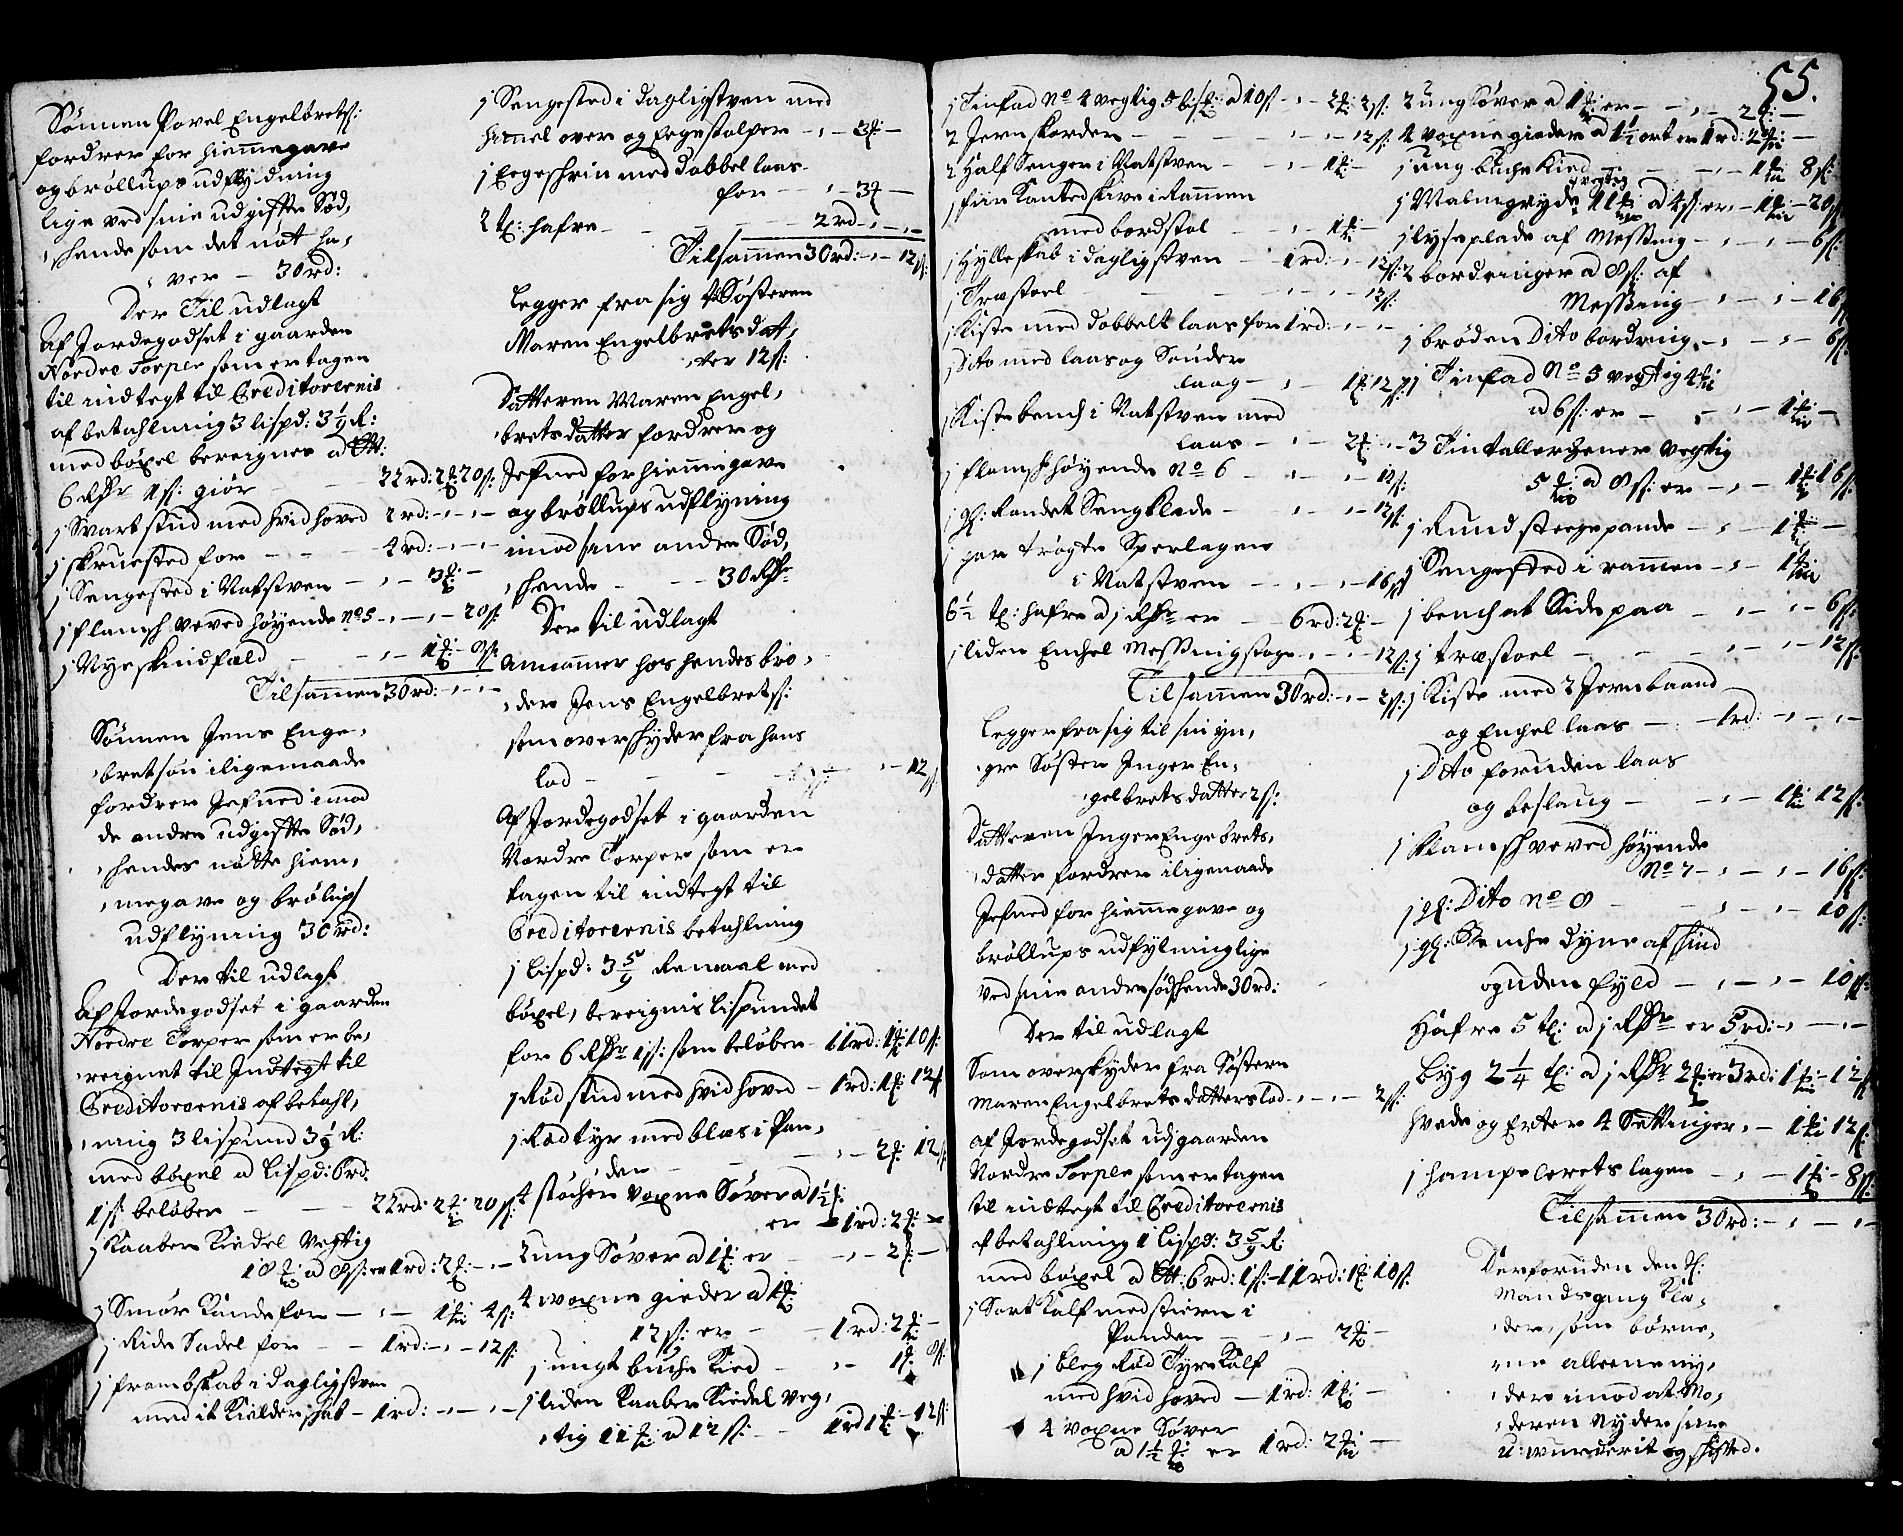 Sønnen Povel Engelbrets:
fordrer for hiemmegave
og brøllups udflyidning
lige ved sine udgifte Sød,
skende som det nøt ha,
ver - 30rd:
Der Til udlagt
Af Jordegodset i gaarden
Nordre Torper som er tagen
til indtegt til Creditorernis
af betahlning 3 lispd: 3 R:
med bøxel beregnes ad
6 Rdr 1 s: giør 22rd: 2 20s:
1 Svart stud med hvid hoved 2rd: - -
1 skruested for - - 4rd: - -
1 Sengested i Natstven - - 3 -
1 flamsk veved høyende no 5 - - 20s:
1 Nye skindfæld - - 1 8s
Tilsammen 30rd: - -
Sønnen Jens Enge,
bretsøn iligemaade
fordrer Jefned imod
de andre udgiffte Sød,
skendes nøtte hiem,
megave og brølups
udflyning 30rd:
Der til udlagt
Af Jordegodset i gaarden
Nordre Torper som er be,
reignet til Indtegt til
Creditorernis af betahl,
ning 3 lispund 3 R:
med bøxel a Lispd: 6rd:
1s: beløber - - 22rd: 2 20s:
1 Kaaber Kiedel Vegtig
18 a 8s: er 1rd: 2 -
1 Smør Kinde for - - 1 4s:
1 Ride Sadel for - - 1rd: - 12s:
1 framskab i Dagligstven
med it Kielderskab - 1rd: - -
1 Sengested i Dagligstven med
himel over og Eegestolper - - 3 -
1 Eegeschrin med Dobbel laas
for - - 3 -
2 t: hafre - - 2rd - -
Tilsamen 30rd: - 12s:
Legger fra sig til Søsteren
Maren Engelbrets dat,
ter 12s:
Datteren Maren Engel,
bretsdatter fordrer og
Jefned for hiemmegave
og brøllups udflyning
imod sine andre Sød,
skende - - 30 Rdr
Der til udlagt
Annammer hos hendes bro,
der Jens Engelbrets:
som overskyder fra hans
lod - - - 12s
Af Jordegodset i gaarden
Nordre Torper som er
tagen til indtegt til
Creditorernis betahlning
1 Lispd: 3 5/9 Remaal med
bøxel, bereignis Lispundet
for 6 Rdr 1s: som beløber - 11rd: 1 10s:
1 Rød stud med hvid hoved - 1rd: 1 12s
1 Rød tyr med blæs i Pan,
den - - 2 12s
4 støcher Voxne Søver a 1½
er - 1rd: 2 -
2 ung Søver a 1 er - - 2 -
4 woxne gieder a 1
12s: er - - 1rd: 2 -
1 ungt buche Kied - - 1 8s:
1 liden Kaaber Kiedel Veg,
tig 11 a 12s: - - 1rd 1 - 12s:
55.
1 Tinfad No 4 vegtig 5 a 10s - - 2 2s:
2 Jern skorder - - - 12s:
2 Half Senger i Natstven - - 1 -
1 fiir Kanted skive i Ramen
med bordstol - - 1 -
1 Hylleskab i dagligstven - 1rd: - 12s:
1 Træstoel - - - 12s:
1 Kiste med Dobbelt laas for 1rd: - -
1 Dito med laas og Sønder
laag - - 1 12s
1 Kistebench i Natstven med
laas - - 2 -
1 flamsk høyende No 6 - - 12s:
1 gl: Randet Sengklæde - - 12s:
1 par trøgte Sperlagen
i Natstven - - 16s
6½ t: hafre a 1 Rdr er - 6rd: 2 -
1 liden Enchel Messingstage - - 12s:
Tilsamen 30rd: - 2s:
Legger fra sig til sin yn,
gre Søster Inger En,
gelbretsdatter 2s:
Datteren Inger Engebrets,
datter fordrer iligemaade
Jefned for hiemmegave og
brøllups udfylning lige
ved sine andre sødskende 30rd:
Der til udlagt
Som overskyder fra Søsteren
Maren Engelbrets datters lod - - 2s:
af Jordegodset udi gaarden
Nordre Torper som er tagen
til indtegt til Creditorernis
afbetahlning 1 Lispd: 3 5/9 R:
med bøxel a : 6rd: 1s: - 11rd: 1 10s:
1 Sort Kalf med stieren i
Panden - - 2 -
1 bleg Rød Tyre Kalf
med hvid hoved - 1rd: 1 -
4 voxne Søver
a 1½ er 1rd: 2 -
2 ung Søver a 1 er - - 2 -
4 voxne gieder a 1½ ort er 1rd: 2 -
1 ung buche Kied - - 1 8s:
1 Malmgryde vegtig 11 a 4s: er - 1 - 20s
1 lyseplade af Messing - - - 6s:
2 bordringer a 8s: af
Messing - - - 16s
1 brøden Dito bordring - - - 6s:
1 Tinfad No 5 vegtig 4
a 6s: er - - 1 -
3 Tintallerchener Vegtig
5 a 8s: er - - 1 16s:
1 Rund steegepande - - 1 -
1 Sengested i ramen - - 1
1 bench at Side paa - - - 6s:
1 træstoel - - - 12s:
1 Kiste med 2 Jernbaand
og Enchel laas - - 1rd: - -
1 Dito foruden laas
og beslaug - - 1 12s:
1 flamsk veved høyende
No 7 - - - 16s:
1 gl: Dito No 8 - - - 10s:
1 gl: Benche Dyne af skind
og uden fyld - - - 10s:
Hafre 5 t: a 1 Rdr er 5rd: - -
Byg 2 ¼ t: a 1 Rdr 2 er 3rd: 1 - 12s
Hvede og Erter 4 Settinger - 1 12s:
1 hampelerets lagen - - 1 - 8s:
Tilsamen 30rd: - -
Derforuden den S:
Mands gang klæ,
der, som børne,
ne alleene ny,
der imod at Mo,
deren Nyder sine
u: wurderit og skifted.